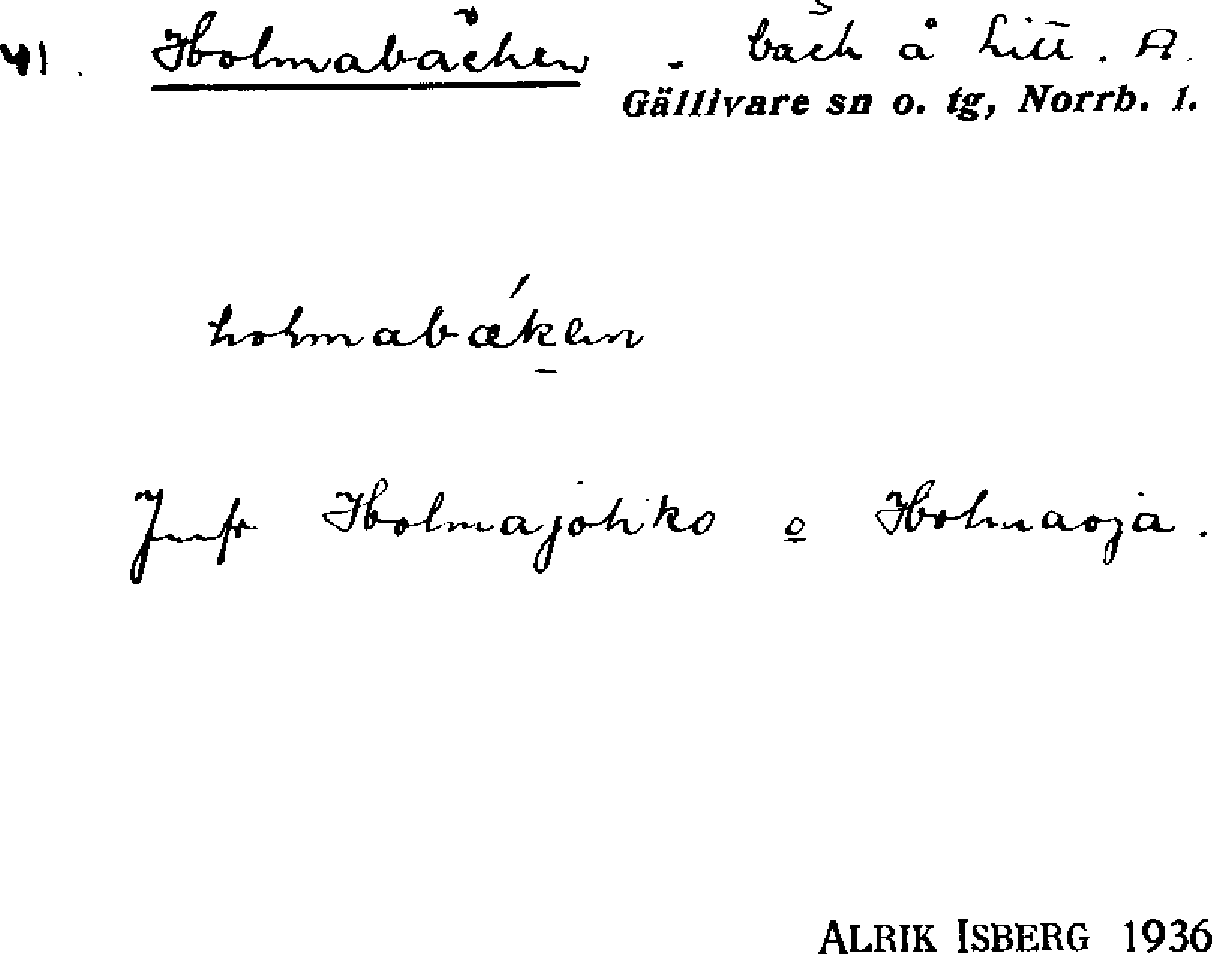 41. Holmabäcken - bäck å Litt. A.
Gällivare sn o. tg, Norrb. l.
holmabǽken
Jmfr Holmajokko o Holmaoja.
ALRIK ISBERG 1936